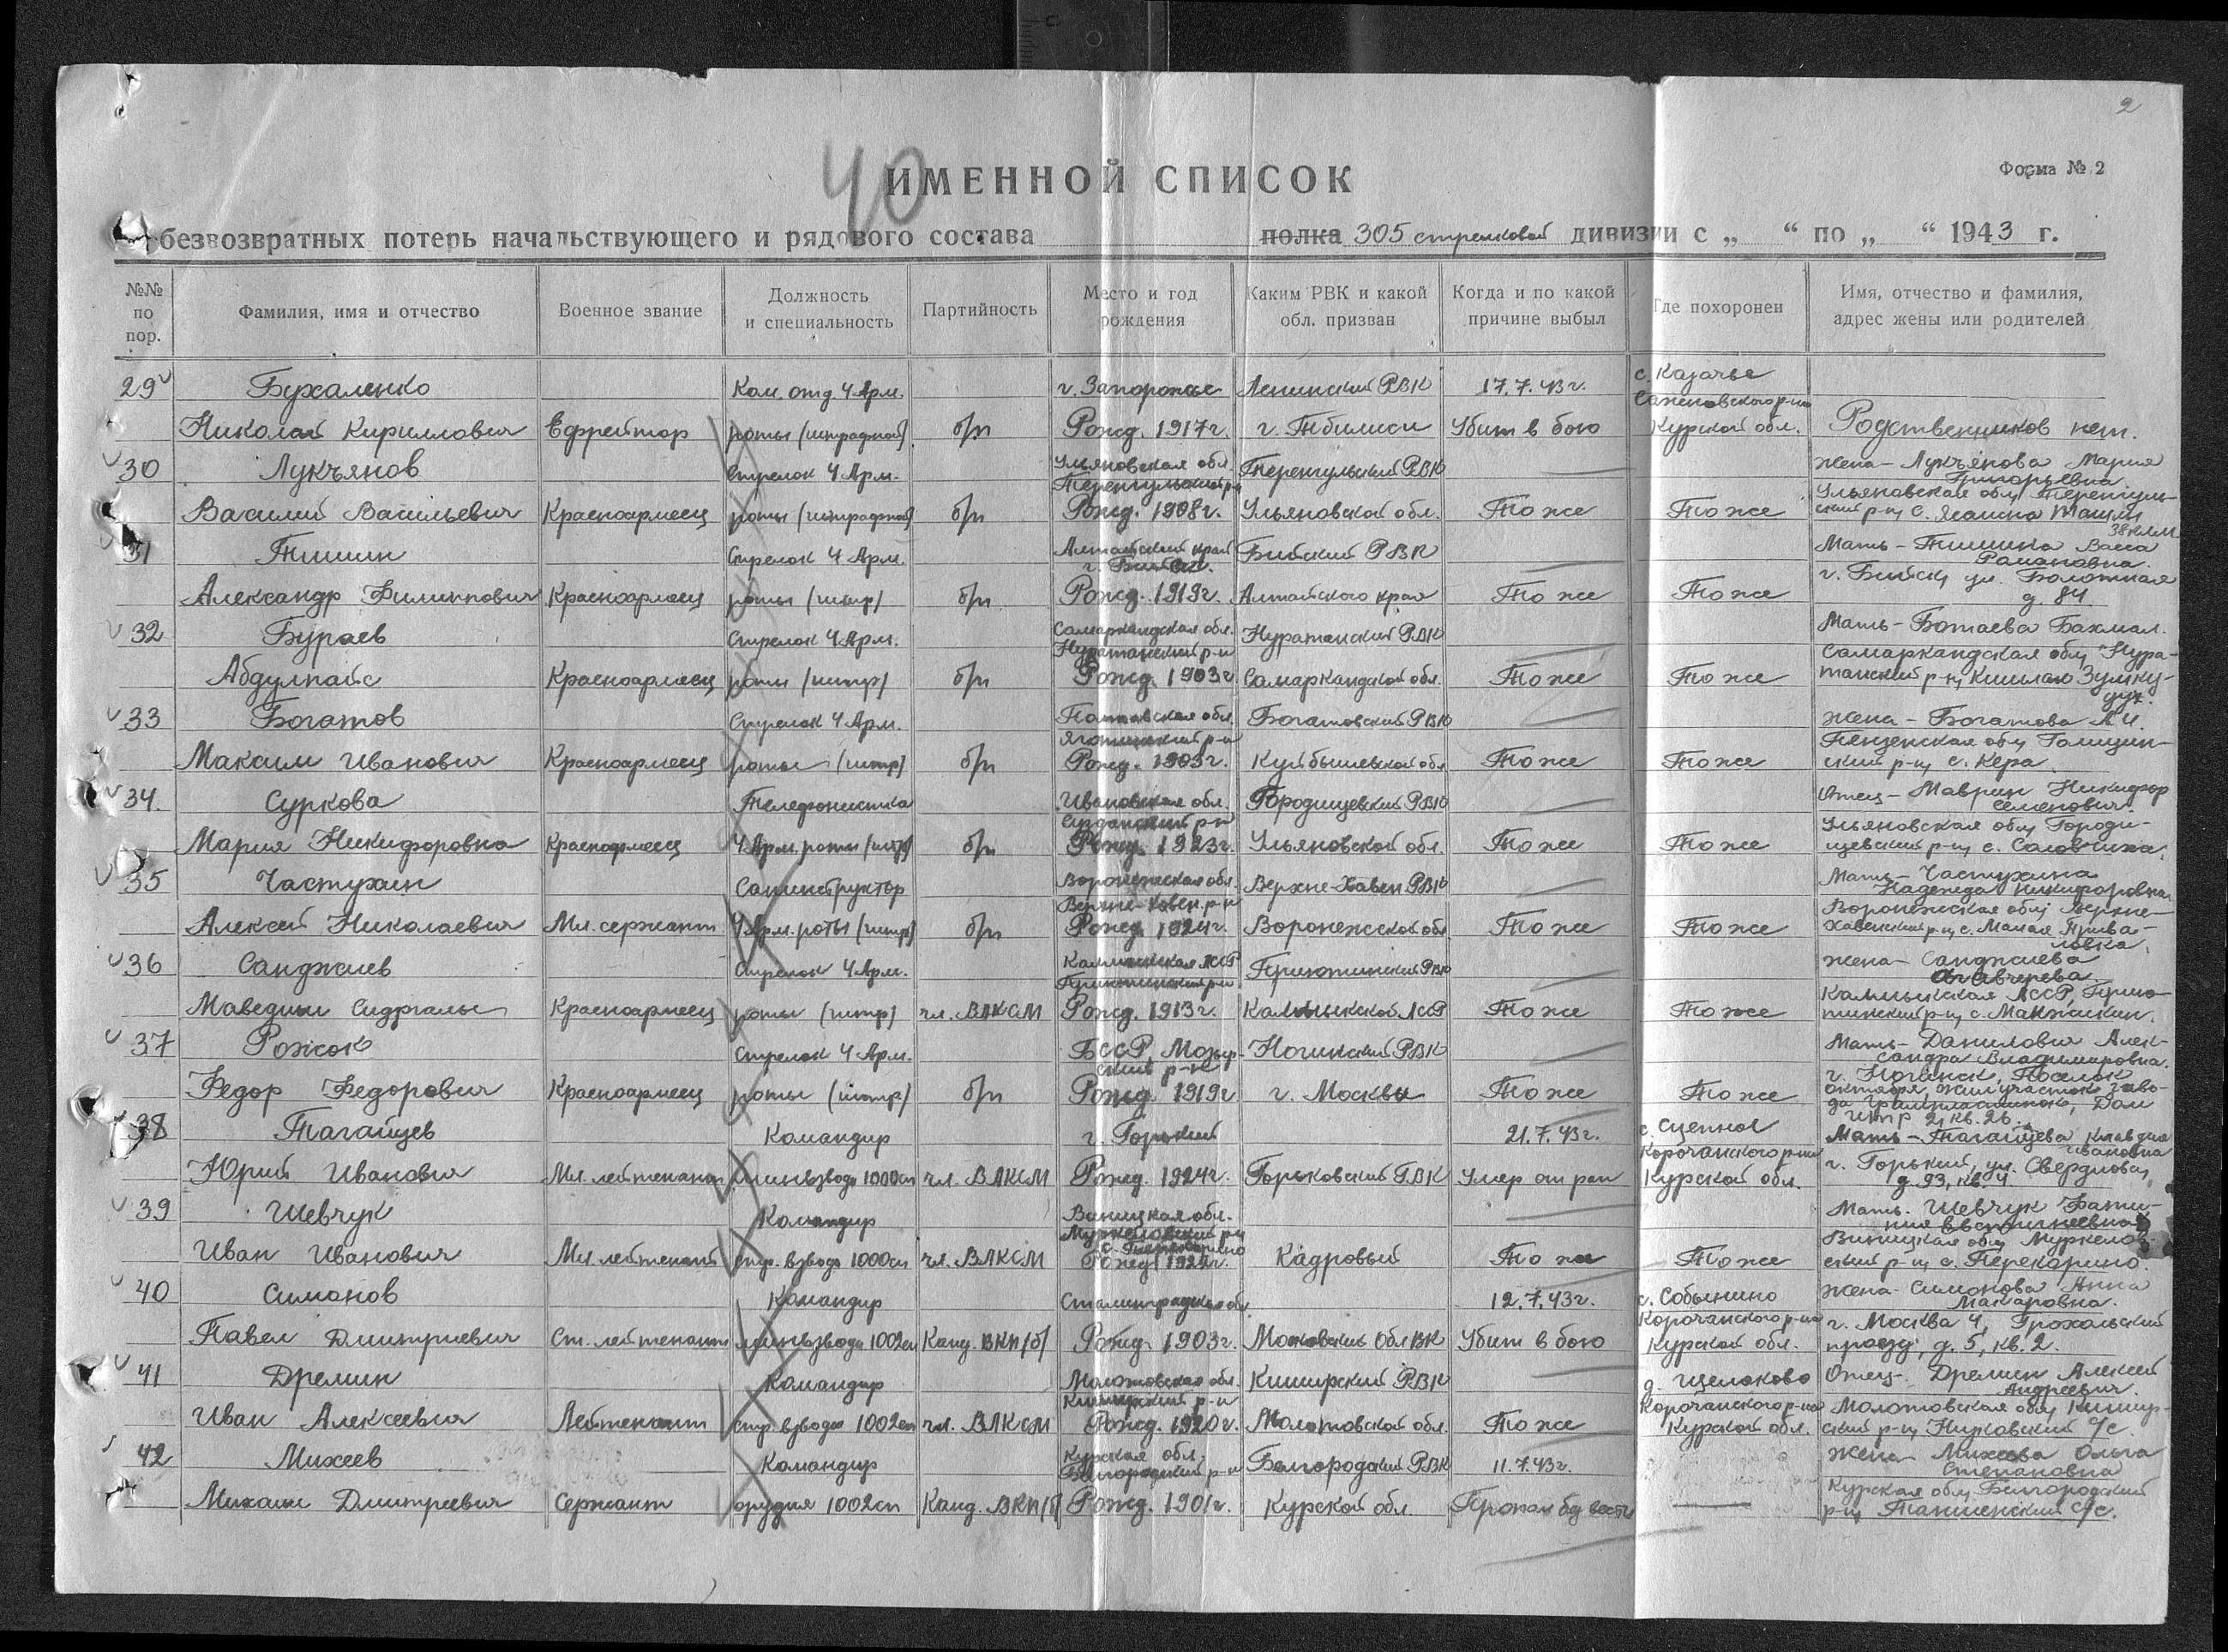 2
40
ИМЕННОЙ СПИСОК
Форма № 2
безвозвратных потерь начальствующего и рядового состава полка 305 стрелковой дивизии с „ “ по „ “ 1943 г.
№№ по пор. Фамилия, имя и отчество Военное звание Должность и специальность Партийность Место и год рождения Каким РВК и какой обл. призван Когда и по какой причине выбыл Где похоронен Имя, отчество и фамилия, адрес жены или родителей
29 Бухаленко Ком. отд 4 Арм. г. Запорожье Ленинский РВК 17.7.43 г. с. Казачье Саженовского р-на
Николай Кириллович Ефрейтор роты (штрафной) б/п Рожд. 1917 г. г. Тбилиси Убит в бою Курской обл. Родственников нет.
30 Лукъянов Стрелок 4 Арм. Ульяновская обл. Теренгульский р-н Теренгульский РВК жена - Лукъянова Мария Григорьевна
Василий Васильевич Красноармеец роты (штрафной) б/п Рожд. 1908 г. Ульяновской обл. То же То же Ульяновская обл, Теренгульский р-н, с. Ташла
31 Тишин Стрелок 4 Арм. Алтайский край г. Бийск. Бийский РВК Мать - Тишина Васса Романовна.
Александр Филиппович Красноармеец роты (штр) б/п Рожд. 1919 г. Алтайского края То же То же г. Бийск, ул. Болотная д. 84
32 Бураев Стрелок 4 Арм. Самаркандская обл. Нуратанский р-н Нуратанский РВК Мать - Ботаева Бахмал.
Абдулпайс Красноармеец роты (штр) б/п Рожд. 1903 г. Самаркандской обл. То же То же Самаркандская обл, Нуратанский р-н, Кишлак
33 Богатов Стрелок 4 Арм. Полтавская обл. Яготинский р-н Богатовский РВК жена - Богатова А.И.
Максим Иванович Красноармеец роты (штр) б/п Рожд. 1903 г. Куйбышевской обл То же То же Пензенская обл, Голицинский р-н, с. Кера
34. Суркова Телефонистка Ивановская обл. р-н Городищевский РВК Отец - Маврин Никифор Семенович.
Мария Никифоровна Красноармеец 4 Арм. роты (штр) б/п Рожд. 1923 г. Ульяновской обл. То же То же Ульяновская обл, Городищевский р-н, с.
35 Частухин Санинструктор Воронежская обл. Верхне-Хавен. р-н Верхне-Хавен РВК Мать - Частухина Надежда Никифоровна
Алексей Николаевич Мл. сержант 4 Арм. роты (штр) б/п Рожд. 1924 г. Воронежской обл То же То же Воронежская обл, Верхне-Хавенский р-н, с. Малая Приваловка.
36 Санджиев Стрелок 4 Арм. Калмыкская АССР Приютинский р-н Приютинский РВК жена - Санджиева
Красноармеец роты (штр) чл. ВЛКСМ Рожд. 1913 г. Калмыкской АССР То же То же Калмыкская АССР, Приютинский р-н, с.
37 Рожок Стрелок 4 Арм. БССР, Мозырский р-н Ногинский РВК Мать - Данилович Александра Владимировна.
Федор Федорович Красноармеец роты (штр) б/п Рожд. 1919 г г. Москвы То же То же г. Ногинск, Поселок октября, жил. участок завода грампластинок, Дом ИТР 2, кв. 26.
38 Тагайцев Командир г. Горький 21.7.43 г. с. Корочанского р-на Мать - Тагайцева Клавдия Ивановна
Юрий Иванович Мл. лейтенант минвзвода 1000 сп чл. ВЛКСМ Рожд. 1924 г. Горьковский ГВК Умер от ран Курской обл. г. Горький, ул. Свердлова, д. 93, кв. 4
39 Шевчук Командир Виницкая обл. Мать. Шевчук
Иван Иванович Мл лейтенант стр. взвода 1000 сп чл. ВЛКСМ Рожд. Кадровый То же То же Виницкая обл, р-н, с.
40 Симонов Командир Сталинградская обл 12.7.43 г. с. Собынино Корочанского р-на жена - Симонова Анна Макаровна.
Павел Дмитриевич Ст. лейтенант минвзвода 1002 сп Канд. ВКП/б/ Рожд. 1903 г. Московский Обл ВК Убит в бою Курской обл. г. Москва 4, Грохольский проезд, д. 5, кв. 2.
41 Дремин Командир Молотовская обл. р-н РВК д. Щелоково Корочанского р-на Отец. Дремин Алексей Андреевич.
Иван Алексеевич Лейтенант стр. взвода 1002 сп чл. ВЛКСМ Рожд. 1920 г. Молотовской обл. То же Курской обл. Молотовская обл, р-н, с/с
42 Михеев Командир Курская обл. Белгородский р-н Белгородский РВК 11.7.43 г. жена - Михеева Ольга Степановна
Михаил Дмитриевич Сержант орудия 1002 сп Канд. ВКП/б/ Рожд. 1901 г. Курской обл. Пропал без вести Курская обл, Белгородский р-н, с/с.